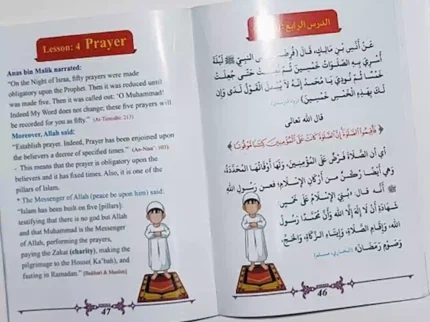 Lesson: 4 Prayer
Anas bin Malik narrated:
"On the Night of Isra, fifty prayers were made
obligatory upon the Prophet. Then it was reduced until
was made five. Then it was called out: 'O Muhammad!
Indeed My Word does not change; these five prayers will
be recorded for you as fifty." (At-Tirmidhi: 213)
Moreover, Allah said:
"Establish prayer. Indeed, Prayer has been enjoined upon
the believers a decree of specified times." (An-Nisa': 103)
- This means that the prayer is obligatory upon the
believers and it has fixed times. Also, it is one of the
pillars of Islam.
* The Messenger of Allah (peace be upon him) said:
"Islam has been built on five [pillars]:
testifying that there is no god but Allah
and that Muhammad is the Messenger
of Allah, performing the prayers,
paying the Zakat (charity), making the
pilgrimage to the House( Ka'bah), and
fasting in Ramadan." (Bukhari & Muslim)
47
الدرس الرابع
عَنْ أَنَسِ بْنِ مَالِكٍ، قَالَ (فُرِضَتْ عَلَى النَّبِيِّ ﷺ لَيْلَةَ
أُسْرِيَ بِهِ الصَّلَوَاتُ خَمْسِينَ ثُمَّ نَقَصَتْ حَتَّى جُعِلَتْ
خَمْسًا ثُمَّ نُودِيَ يَا مُحَمَّدُ إِنَّهُ لَا يُبَدَّلُ الْقَوْلُ لَدَيَّ وَإِنَّ
لَكَ بِهَذِهِ الْخَمْسِ خَمْسِينَ)
قال الله تعالى
أي ان الصَّلَاةَ فَرْضٌ عَلَى الْمُؤْمِنِينَ، وَلَهَا أَوْقَاتُهَا الْمُحَدَّدَةُ،
وهي أيضا ركن من أركان الإسلام؛ فعن رسول الله
ﷺ أنه قال: بُنِيَ الْإِسْلَامُ عَلَى خَمْسٍ
شَهَادَةِ أَنْ لَا إِلَهَ إِلَّا اللَّهُ وَأَنَّ مُحَمَّدًا رَسُولُ
الله، وَإِقَامِ الصَّلَاةِ، وَإِيتَاءِ الزَّكَاةِ، وَالْحَجِّ،
وَصَوْمِ رَمَضَانَ
46